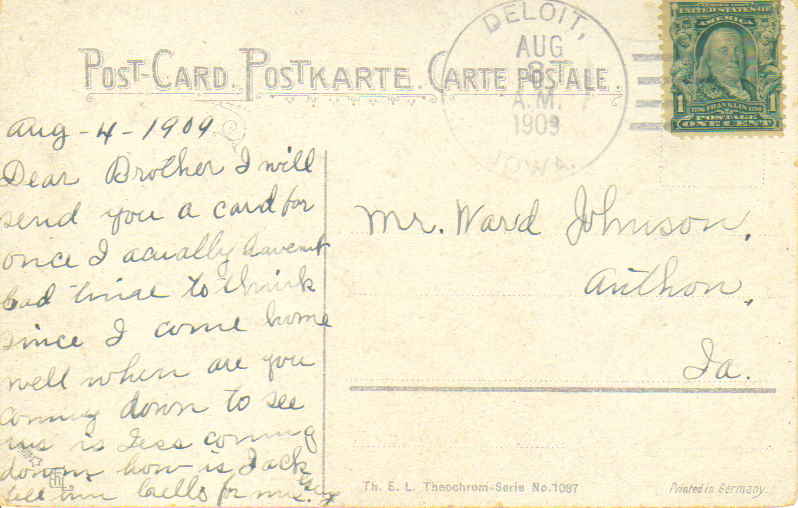 POST-CARD. POSTKARTE. CARTE POSTALE.
DELOIT,
AUG
A.M.
1909
IOWA.
UNITED STATES OF
AMERICA
1 FRANKLIN 1
POSTAGE
ONE CENT
Aug - 4 - 1909
Dear Brother I will
send you a card for
once I acually havent
had time to think
since I come home
well when are you
coming down to see
us is Tess coming
down how is Jack
tell him hello for me.
Mr. Ward Johnson,
Anthon,
Ia.
Th. E. L. Theochrom-Serie No. 1087
Printed in Germany